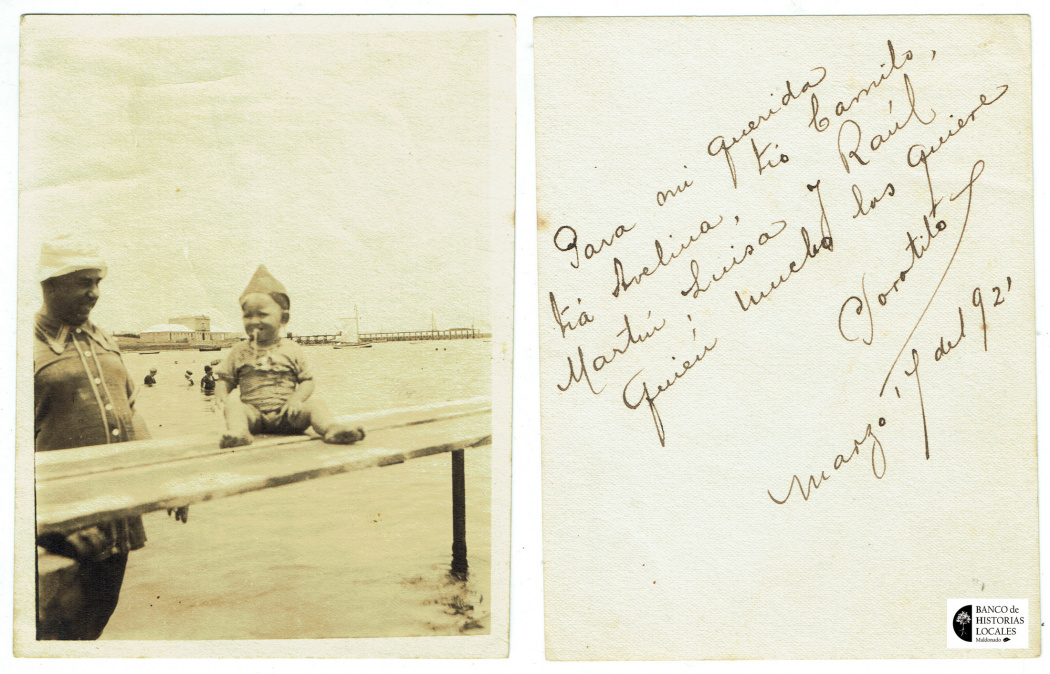 Para mi querida
tía Avelina, tío Camilo,
Martín, Luisa y Raúl
quién mucho los quiere
Marzo 17 del 921
BANCO de
HISTORIAS
LOCALES
Maldonado